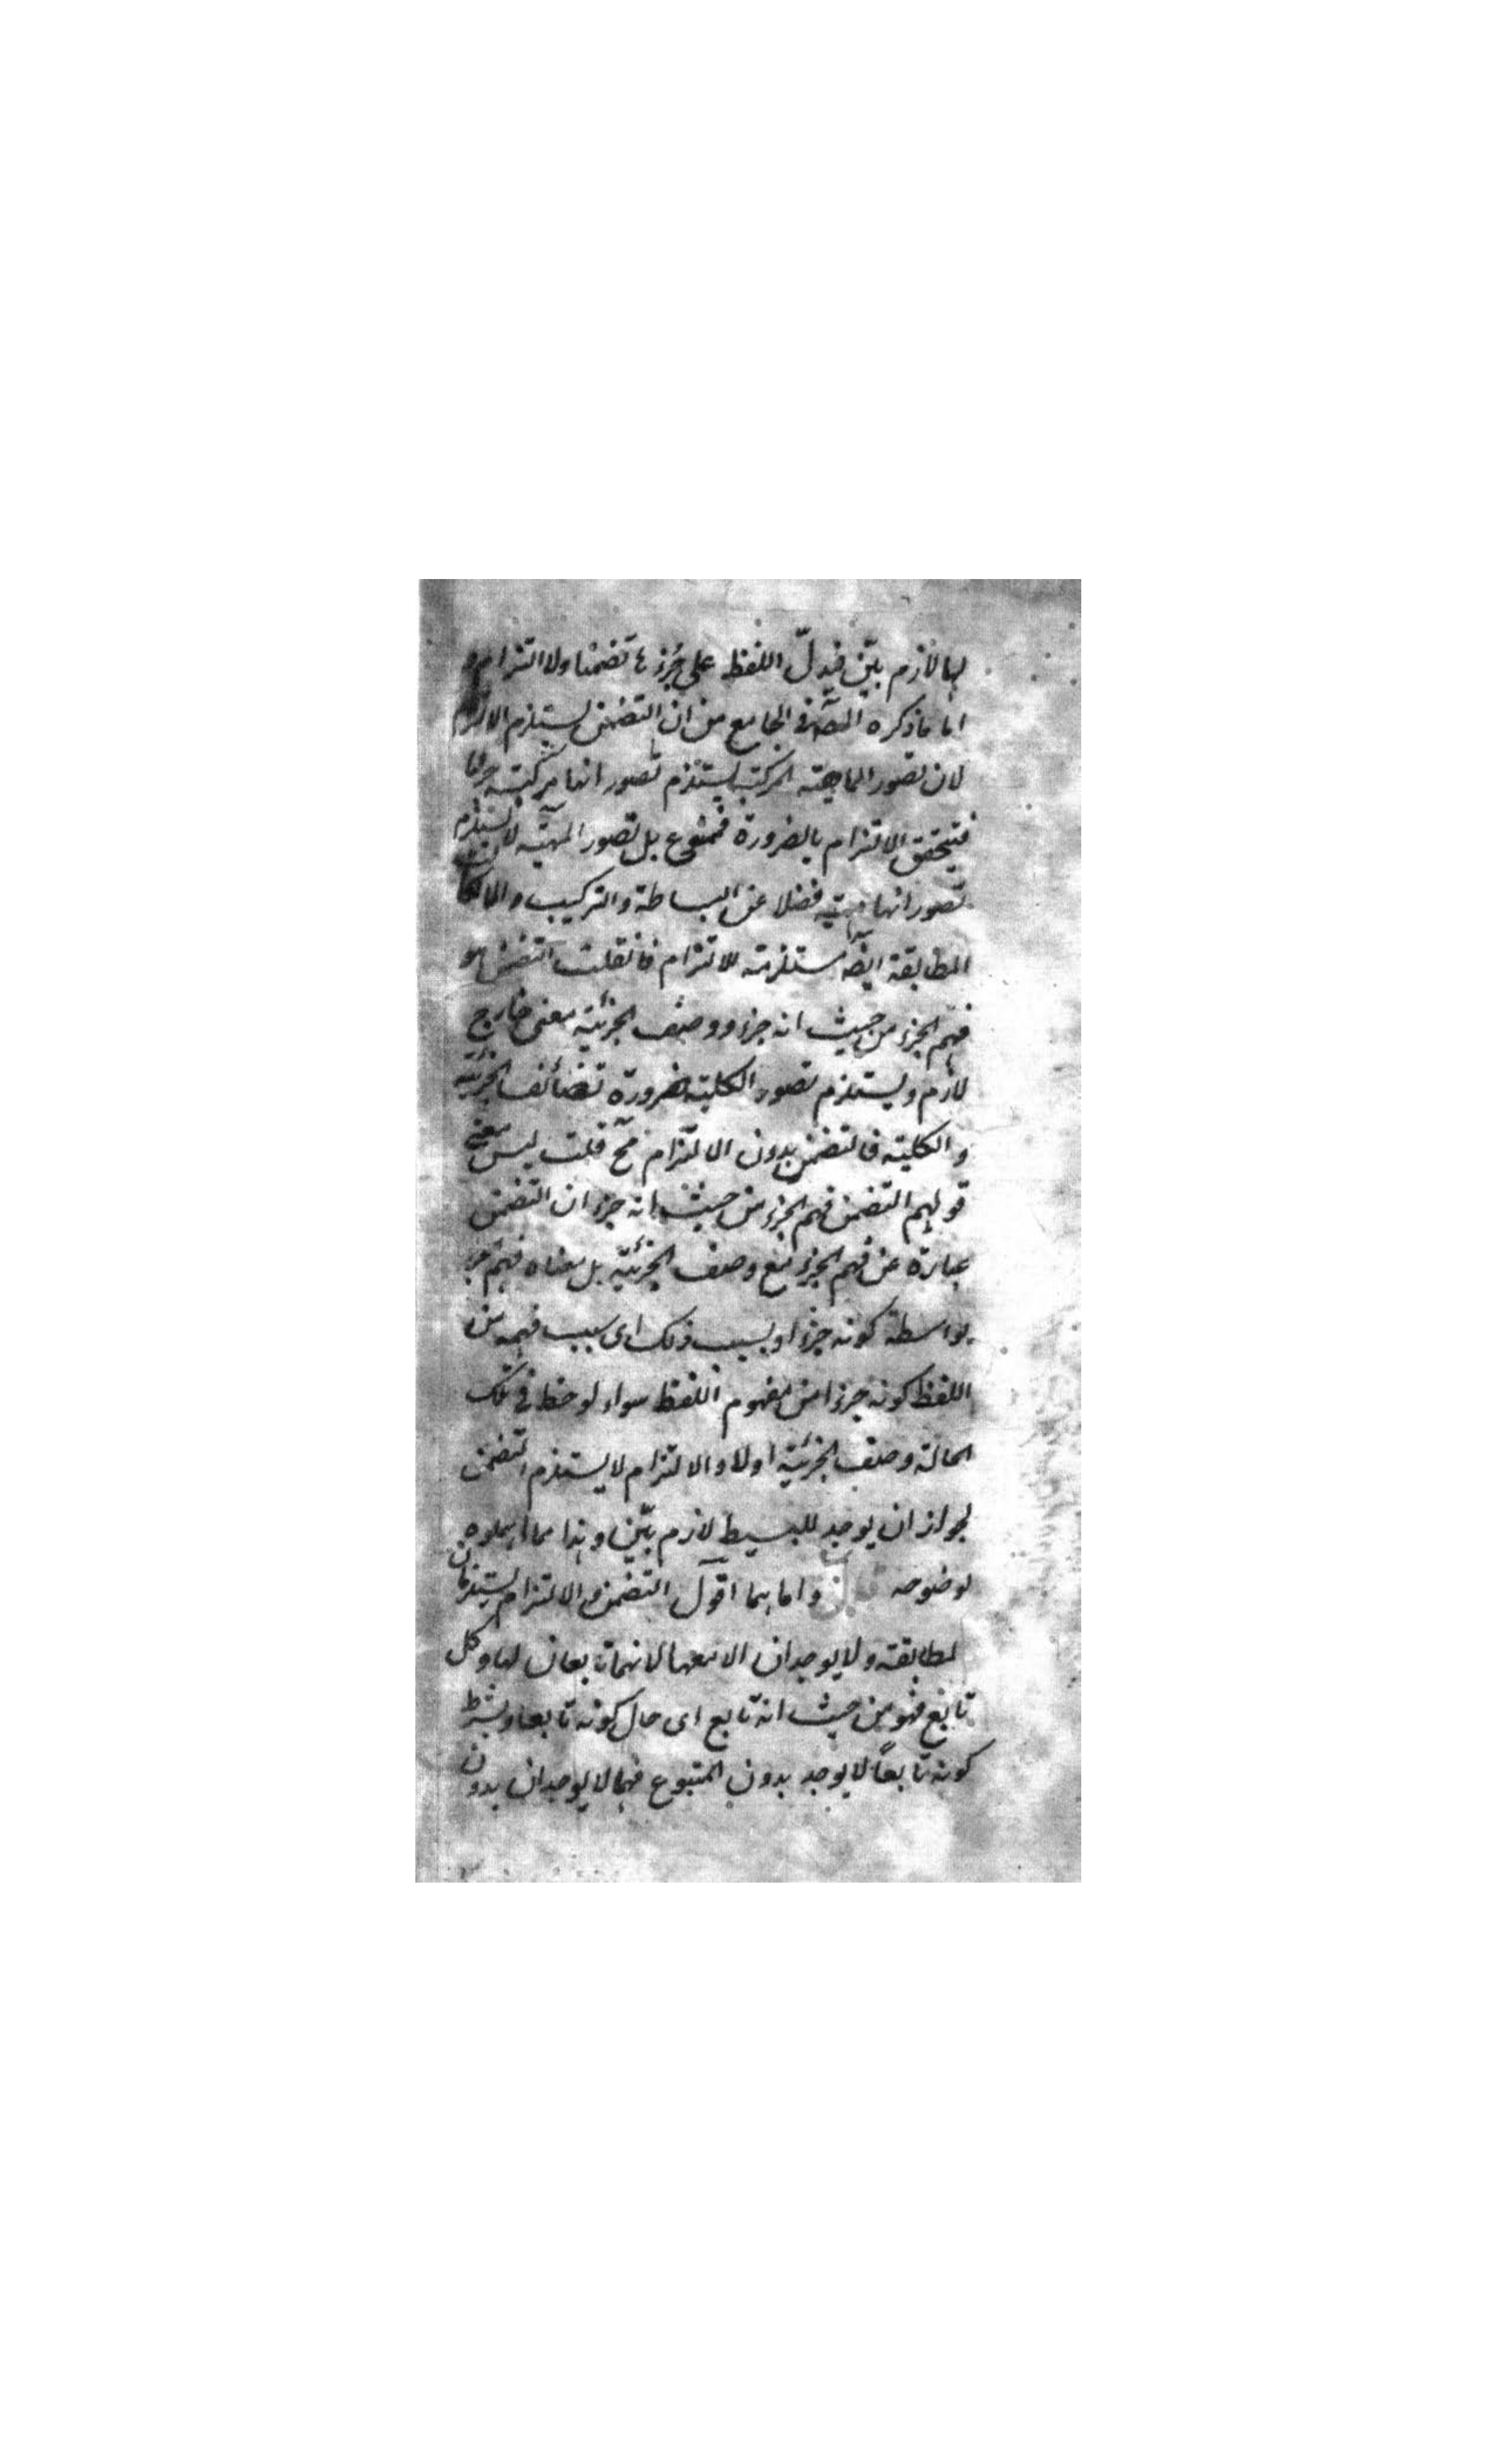 لها لازم بيّن فيدلّ اللفظ على جزئه تضمنا ولا التزام و
اما ما ذكره المصـ فى الجامع من ان التضمن يستلزم الالتزام
لان تصور الماهية المركبة يستلزم تصور انها مركبة
فيتحقق الالتزام بالضرورة فممنوع بل تصور المهية لا يستلزم
تصور انها مهية فضلا عن البساطة والتركيب والا لكان
المطابقة ايضـ مستلزمة للالتزام فان قلت التضمن هو
فهم الجزء من حيث انه جزء ووصف الجزئية معنى خارج
لازم ويستلزم تصور الكلية ضرورة تضائف الجزئية
والكلية فالتضمن بدون الالتزام مح قلت ليس معنى
قولهم التضمن فهم الجزء من حيث انه جزء ان التضمن
عبارة عن فهم الجزء مع وصف الجزئية بل معناه فهم جزء
بواسطة كونه جزءا وبسبب ذلك اى سبب فهمه من
اللفظ كونه جزءا من مفهوم اللفظ سواء لوحظ فى تلك
الحالة وصف الجزئية اولا والالتزام لا يستلزم التضمن
لجواز ان يوجد للبسيط لازم بيّن وهذا مما اهملوه
لوضوحه قال واما هما اقول التضمن والالتزام يستلزمان
لمطابقة ولا يوجدان الا معها لانهما تابعان لها وكل
تابع فهو من حيث انه تابع اى حال كونه تابعا وبشرط
كونه تابعاً لا يوجد بدون المتبوع فهما لا يوجدان بدون